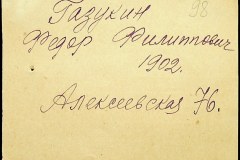 Гадукин 98
Федор Филиппович
1902.
Алексеевская 76.